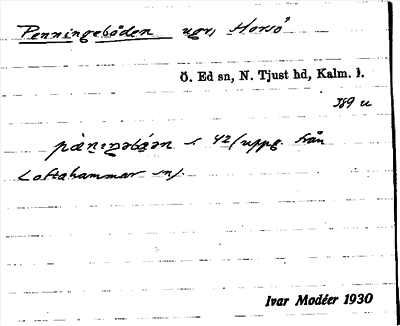 Penningebåden ugr, Horsö
Ö. Ed sn, N. Tjust hd, Kalm. l.
J89 u
pæ̀niŋəbǻən s. 42 (uppg. från
Loftahammar sn).
Ivar Modéer 1930